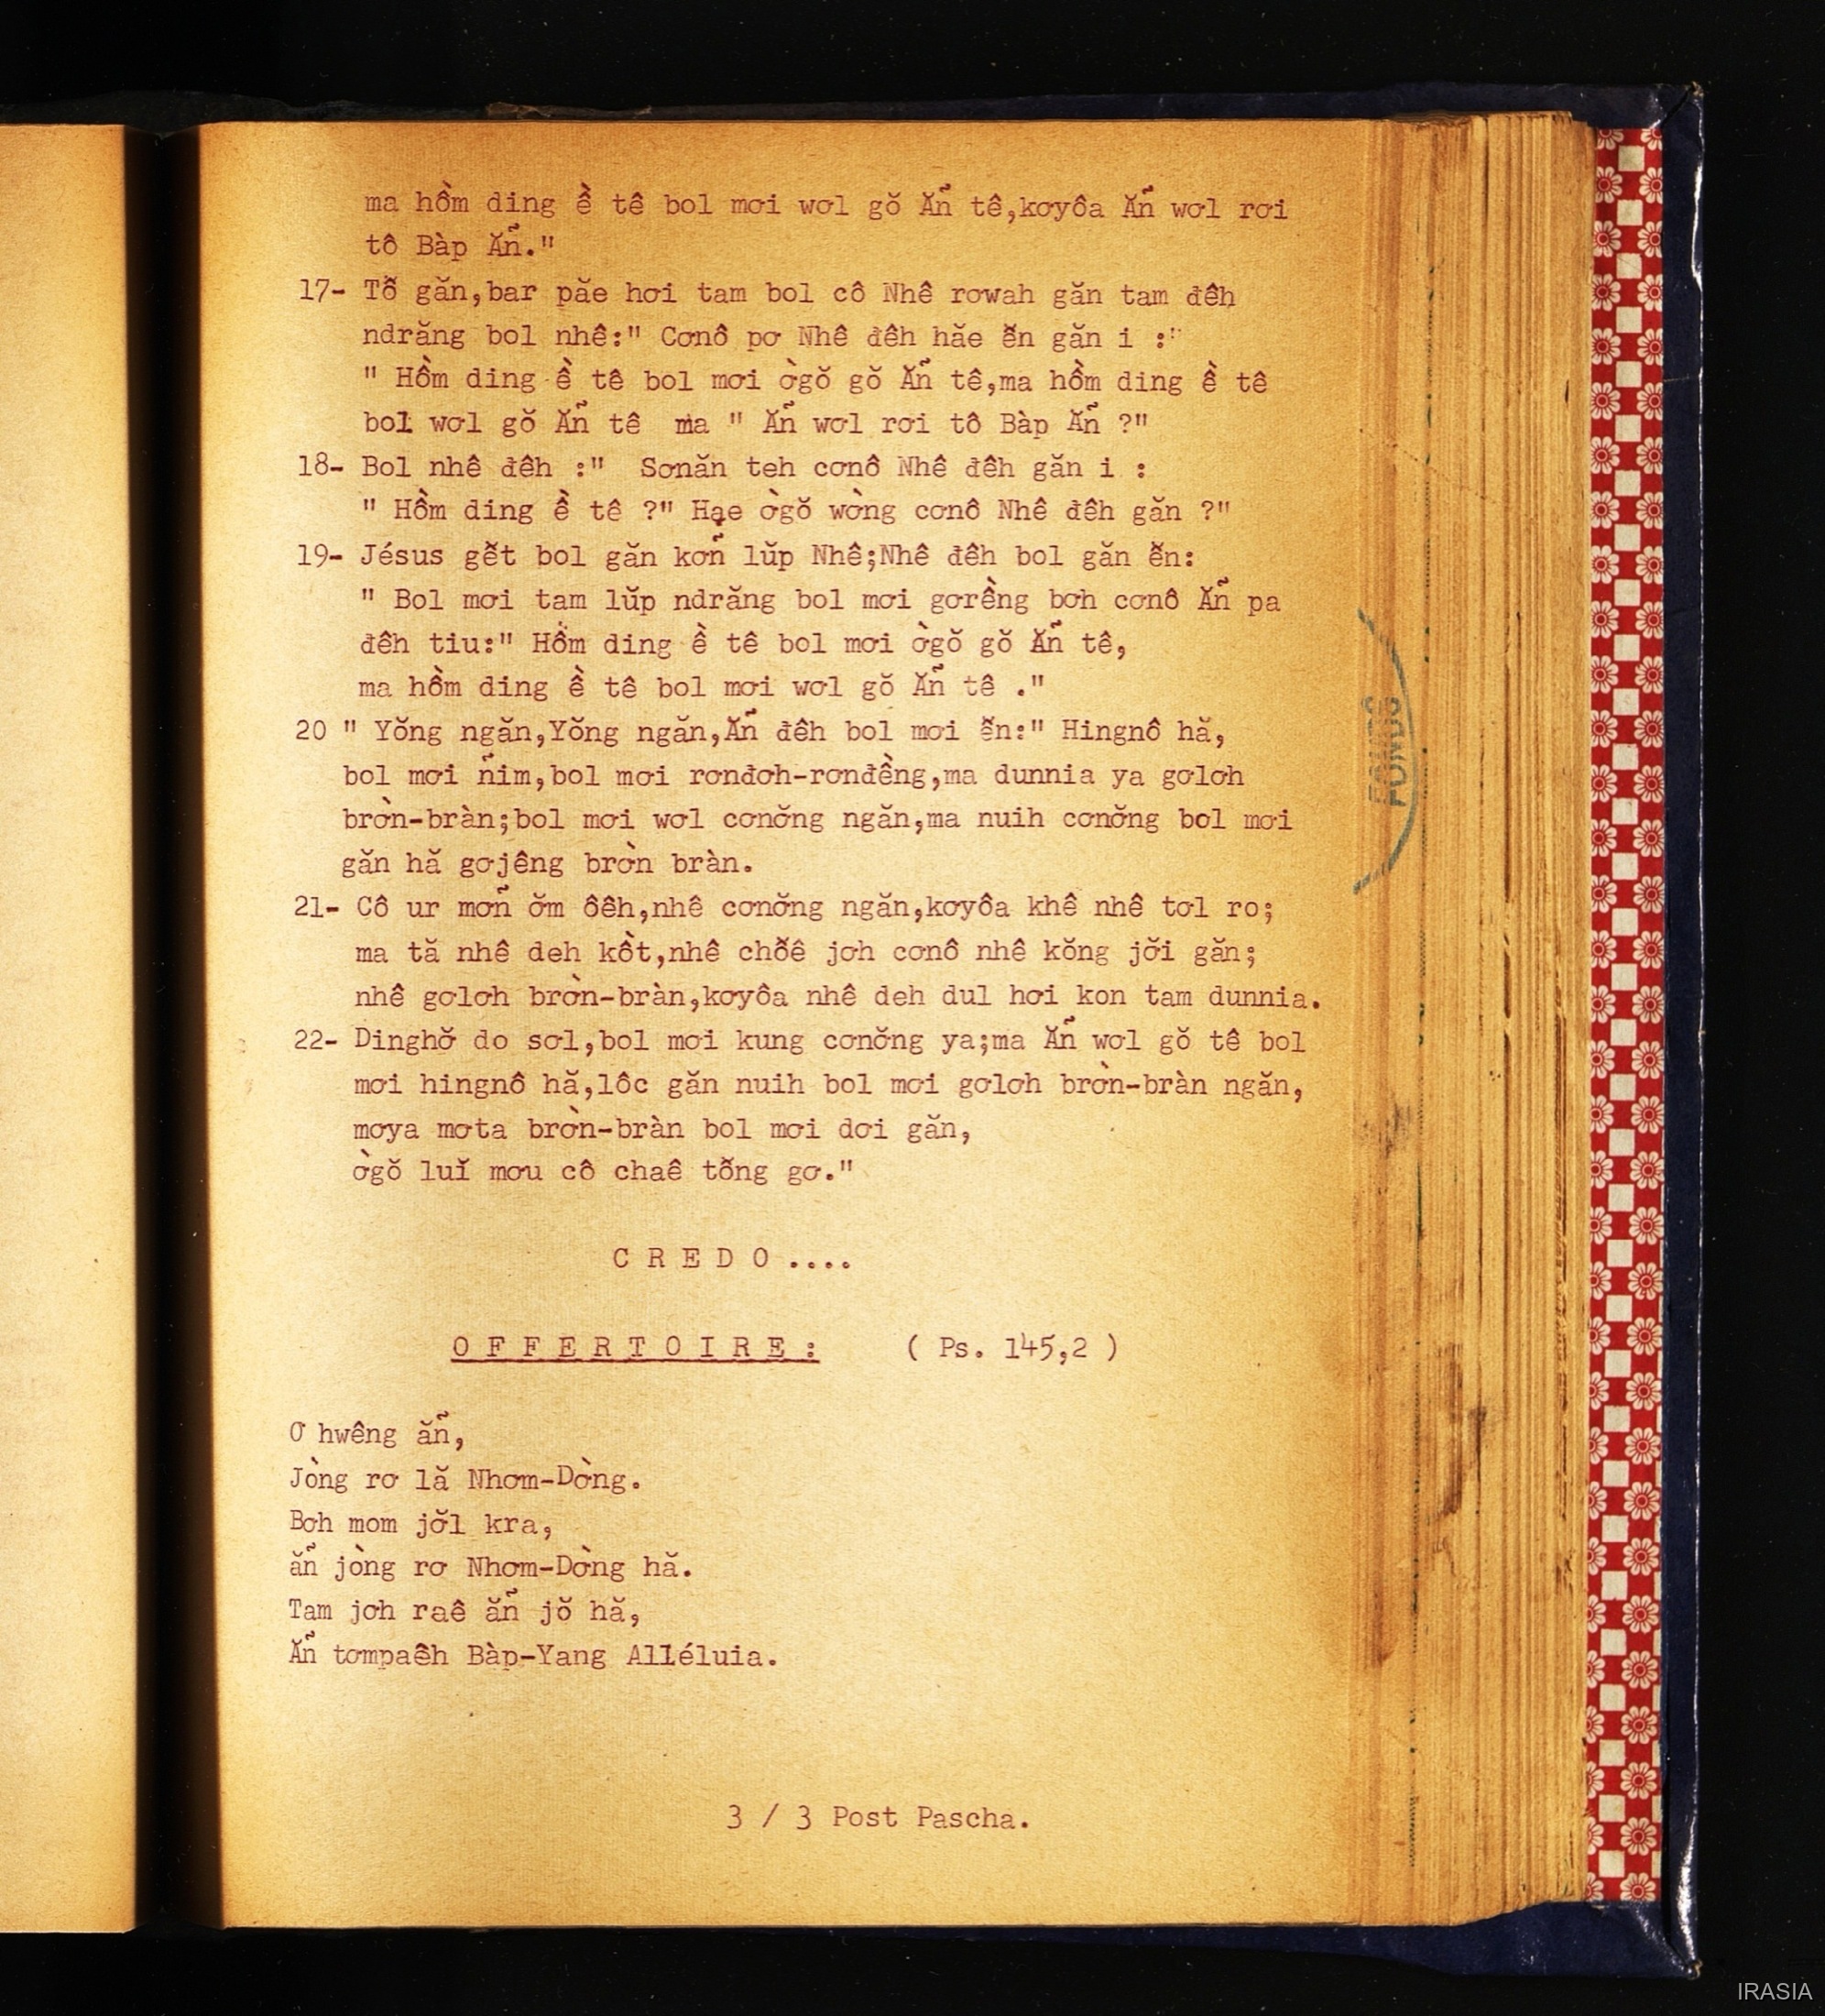 ma hồm ding ề tê bol mơi wơl gŏ Ăñ tê,kơyôa Ăñ wơl rơi
tô Bàp Ăñ."
17- Tô̆ găn,bar păe hơi tam bol cô Nhê rơwah găn tam đêh
ndrăng bol nhê:" Cơnô pơ Nhê đêh hăe ê̆n găn i :"
" Hồm ding ề tê bol mơi ờgŏ gŏ Ăñ tê,ma hồm ding ề tê
bol wơl gŏ Ăñ tê ma " Ăñ wơl rơi tô Bàp Ăñ ?"
18- Bol nhê đêh :" Sơnăn teh cơnô Nhê đêh găn i :
" Hồm ding ề tê ?" Hạe ờgŏ wờng cơnô Nhê đêh găn ?"
19- Jésus gê̆t bol găn kơñ lŭp Nhê;Nhê đêh bol găn ê̆n:
" Bol mơi tam lŭp ndrăng bol mơi gơrềng bơh cơnô Ăñ pa
đêh tiu:" Hồm ding ề tê bol mơi ờgŏ gŏ Ăñ tê,
ma hồm ding ề tê bol mơi wơl gŏ Ăñ tê ."
20 " Yŏng ngăn,Yŏng ngăn,Ăñ đêh bol mơi ê̆n:" Hingnô hă,
bol mơi ñim,bol mơi rơnđơh-rơnđềng,ma dunnia ya gơlơh
brờn-bràn;bol mơi wơl cơnơ̆ng ngăn,ma nuih cơnơ̆ng bol mơi
găn hă gơjêng brờn bràn.
21- Cô ur mơñ ơ̆m ôêh,nhê cơnơ̆ng ngăn,kơyôa khê nhê tơl ro;
ma tă nhê deh kồt,nhê chô̆ê jơh cơnô nhê kŏng jơ̆i găn;
nhê gơlơh brờn-bràn,kơyôa nhê deh dul hơi kon tam dunnia.
22- Dinghơ̆ do sơl,bol mơi kung cơnơ̆ng ya;ma Ăñ wơl gŏ tê bol
mơi hingnô hă,lôc găn nuih bol mơi gơlơh brờn-bràn ngăn,
mơya mơta brờn-bràn bol mơi dơi găn,
ờgŏ luĭ mơu cô chaê tô̆ng gơ."
C R E D O ....
O F F E R T O I R E : ( Ps. 145,2 )
Ơ hwêng ăñ,
Jòng rơ lă Nhơm-Dờng.
Bơh mom jơ̆l kra,
ăñ jòng rơ Nhơm-Dờng hă.
Tam jơh raê ăñ jŏ hă,
Ăñ tơmpaêh Bàp-Yang Alléluia.
3 / 3 Post Pascha.
FONDS
IRASIA